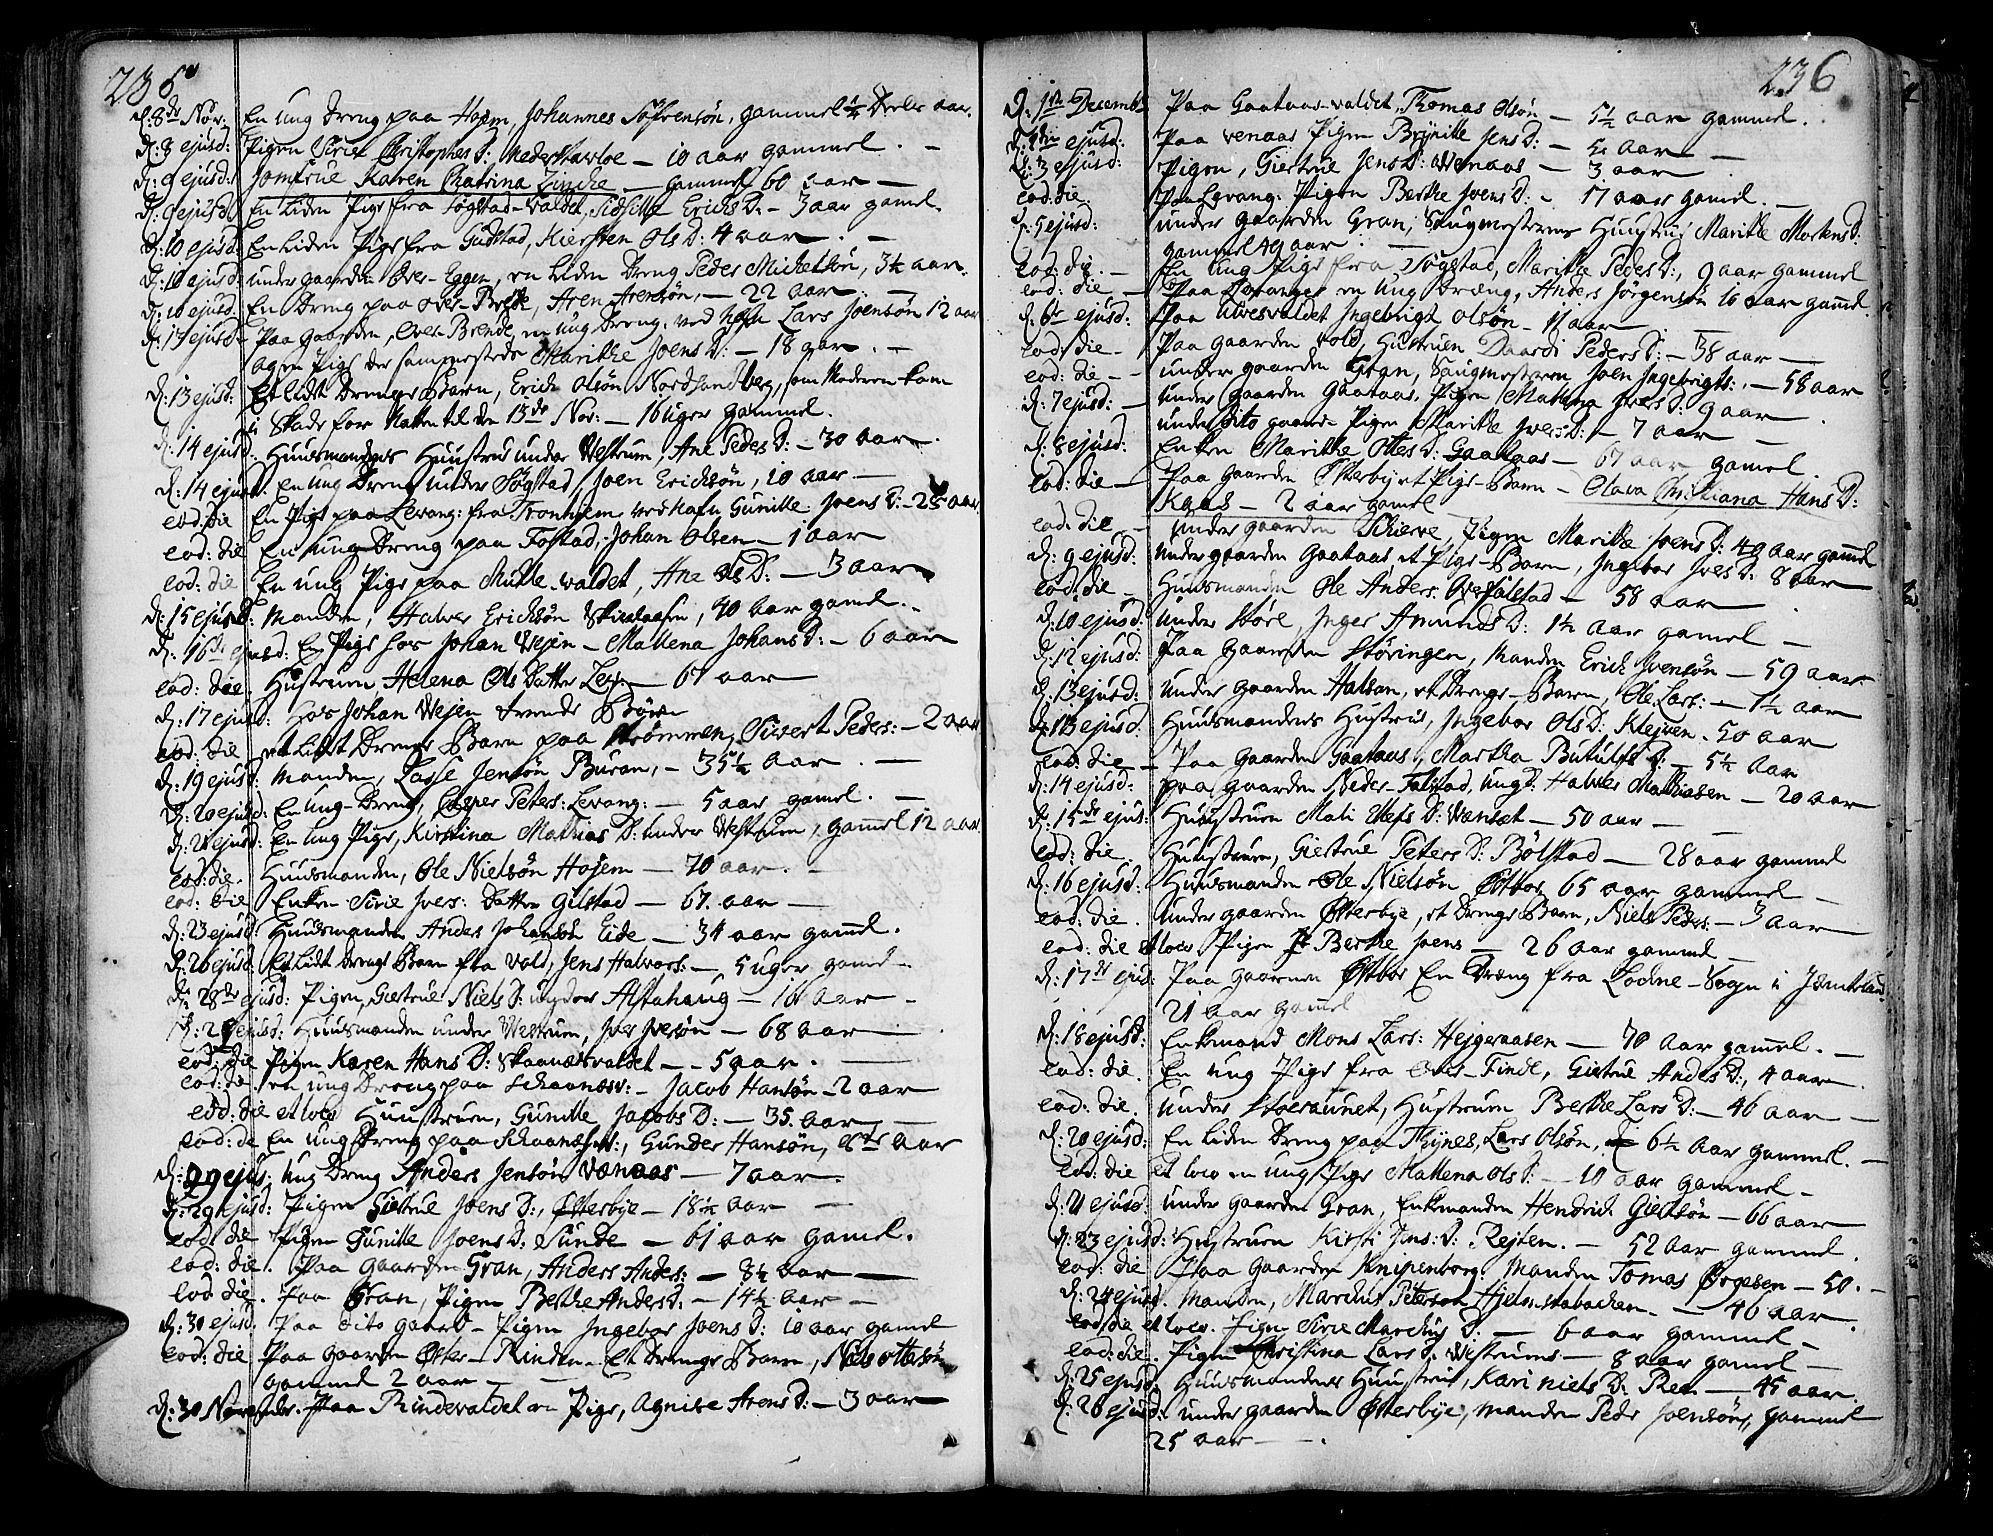 235
d: 8de Nov: En ung Dreng paa Hojem, Johannes Söfrensön, gammel 1/4 Deels aar.
d: 8 ejusd: Pigen Sirie Christophers D: Nederskavloe — 10 aar gammel. —
d: 9 ejusd: Jomfrue Karen Chatrina Zincke — gammel 60 aar —
d: 9 ejusd: En liden Pige fra Søgstad-valdet, Sidselle Erichs D: — 3 aar gamel.
d: 10 ejusd: En liden Pige fra Gudstad, Kiersten Ols D: 4 aar — . —
d: 10 ejusd: under gaarden Over-Eggen, en liden Dreng Peder Michelsön, 3 1/2 aar.
d: 10 ejusd: En Dreng paa over-Brede, Aren Arensön, — 22 aar. —
d: 11 ejusd: Paa gaarden, Over Brende, en ung Dreng, ved Lars Joensön 12 aar
og en Pige der sammesteds Marithe Joens D: — 18 aar. —
d: 13 ejusd: Et lidt Drenge Barn, Erich Olsön Nordsandberg, som Moderen kom
i Skade for Natten til den 13de Nov: — 16 uger gammel.
d: 14 ejusd: Huusmandens Huustrue under Westrum, Ane Peders D: — 30 aar.
d: 14 ejusd: En ung Dreng under Søgstad, Joen Erichsön, 10 aar —
eod: die En Pige paa Levang: fra Tronhiem ved Gunille Joens D: — 25 aar
eod: die En ung Dreng paa Fostad, Johan Olsen — 1 aar
eod: die En ung Pige paa Mulle-valdet, Ane Ols D: — 3 aar
d: 15 ejusd: Manden, Halver Erichsön Skielaasen, 40 aar gamel. —
d: 16de ejusd: En Pige hos Johan Wejen — Mallena Johans D: — 6 aar
eod: die. Hustruen Helena Ols Datter — 67 aar
d: 17 ejusd: Hos Johan Wejen trende Börn
eod: die et lidt Drenge Barn paa Strømmen, Sivert Peders: — 2 aar
d: 19 ejusd: Manden, Lasse Jensön Buran, — 35 1/2 aar. —
d: 20 ejusd: En ung Dreng, Casper Peters: Levang: — 5 aar gamel. —
d: 21 ejusd: En ung Pige, Kirstina Mathias D: under Westrum, gamel 12 aar
eod: die. Huusmanden, Ole Nielsön Hojem — 70 aar. —
eod: die Enken Sirie Ivers: Datter Gilstad — 67 aar —
d: 23 ejusd: Huusmanden Anders Johansen Eide — 34 aar gamel.
d: 26 ejusd: Et lidt Drenge Barn fra Vold, Jens Halvors: — 5 uger gamel —
d: 28de ejusd: Pigen, Giertrue Niels D: under Alstahaug — 16 aar —
d: 29 ejusd: Huusmanden under Westrum, Iver Iversön — 68 aar
eod: die Pigen Karen Hans D: Skaanesvaldet — 5 aar.
eod: die en ung Dreng paa Schaanesv: — Jacob Hansön — 2 aar
eod: die et loco Huustruen, Gunille Jacobs D: — 35 aar. —
eod: die En ung Dreng paa Schaanesv:, Gunder Hansön, aar
d: 29 ejus: ung Dreng Anders Jensön Vænaas — 7 aar.
d: 29 ejusd: Pigen Giertrue Joens D:, Østerbye — 18 1/2 aar —
eod: die Pigen Gunille Joens D: Sunde — 61 aar gamel.
eod: die. Paa gaarden Gran, Anders Anders: — 8 1/2 aar —
eod die. Paa Gran, Pigen Berthe Anders D: — 14 1/2 aar —
d: 30 ejusd. Paa dito gaard — Pigen Ingebor Joens D: 10 aar gamel
eod: die Paa gaarden Øster-Rinden En Drenge Barn, Niels Ottesön
gammel 2 aar —
d: 30 Novembr. Paa Rindevaldet en Pige, Agnise Arens D: — 3 aar
236
d: 1ste Decemb: Paa Gaataas-valdet, Thomas Olsön — 5 1/2 aar gammel.
ejusd: Paa venaas Pigen Brynille Jens D: — 5 aar —
d: 3 ejusd: Pigen, Giertrue Jens D: Wenaas — 3 aar
eod: die. Paa Levang: Pigen Berthe Joens D: — 17 aar gamel. —
d: 5 ejusd: under gaarden Gran, Saugmesterens Huustrue Marithe Mortens D:
gammel 49 aar. —
eod: die. En ung Pige fra Søgstad, Marithe Peders D:, 9 aar gammel
eod: die Paa Levanger en ung Dræng, Anders Jörgensön 10 aar gamel.
d: 6te ejusd: Paa Alvesvaldet Ingebrigt Olsön — 11 aar —
eod: die — Paa gaarden vold, Hustruen Daardi Peders D: — 38 aar —
eod: die — under gaarden Gran, Saugmesteren Joen Ingebrigts: — 58 aar
d: 7 ejusd: — under gaarden Gaataas, Pigen Mallena Ivers D: 9 aar
under dito gaard — Pigen Marithe Ivers D: — 7 aar —
d: 8 ejusd: Enken Marithe Ottes D: Gaataas — 67 aar gamel.
eod: die — Paa gaarden Østerbye et Pige-Barn — Olava Christiana Hans D:
Kaas — 2 aar gamel
eod: die — under gaarden Schieve, Pigen Marithe Joens D: 49 aar gamel
d: 9 ejusd: under gaarden Gaataas et Pige-Barn, Ingebor Ivers D: 8 aar
eod: die. Huusmanden Ole Anders: Overfalstad — 58 aar
d: 10 ejusd: under Støre, Inger Amunds D: 1 1/2 aar gamel —
d: 12 ejusd: Paa gaarden Støringen, Manden Erich Ivensön — 59 aar
d: 13 ejusd: under gaarden Halsan, et Drenge-Barn, Ole Lars: — 1 1/2 aar
d: 13 ejusd: Huusmandens Hustrue, Ingebor Ols D: Klejven. 50 aar
eod: die — Paa gaarden Gaataas, Martha Butulfs D: — 5 1/2 aar
d: 14 ejusd: paa gaarden Neder-Falstad, ung D: Halvor Mathiasen — 20 aar
d: 15de ejus: Huustruen Mali D: Wænset — 50 aar —
eod: die. Huustruen, Giertrue Peters D: Bølstad — 28 aar gammel
d: 16 ejusd: Huusmanden Ole Nielsön Østbor 65 aar gammel —
eod: die. under gaarden Østerbye, et Drenge Barn, Niels Peders: — 3 aar
eod: die et loco Pigen Berthe Joens — 26 aar gammel —
d: 17de ejus: Paa gaarden Østbor En Dreng fra Lodne-Sogn i Jemteland
21 aar gamel
d: 18 ejusd: Enkmand Mons Lars: Hejgeraasen — 70 aar gamel. —
eod: die. En ung Pige fra Finde, Giertrue Anders D:, 4 aar
eod: die. under Stoeraunet, Hustruen Berthe Lars D: — 46 aar —
d: 20 ejusd: En liden Dreng paa Thynes, Lars Olsön, 6 1/2 aar gammel. —
eod: die et loco en ung Pige Mallena Ols D: — 10 aar gammel —
d: 21 ejusd: under gaarden Gran, Enkmanden Hendrich Giertsön — 66 aar
d: 23 ejusd: Hustruen Kirsti Jens: D: Rejten. — 52 aar gammel.
eod: die Paa gaarden Knipenborg: Manden Tomas Ørgesen — 50. —
d: 24 ejusd. Manden, Marcus Peterson Hjelmstabachen — 46 aar.
eod: die et loco. Pigen Sirie Marcus D: — 6 aar gammel —
eod: die. Pigen Christina Lars D: Westrum — 8 aar gammel —
d: 25 ejusd: Huusmandens Huustrue, Kari Niels D: Ren — 45 aar.
d: 26 ejusd: under gaarden Østerbye, Manden Peder Joensön, gammel
25 aar —.